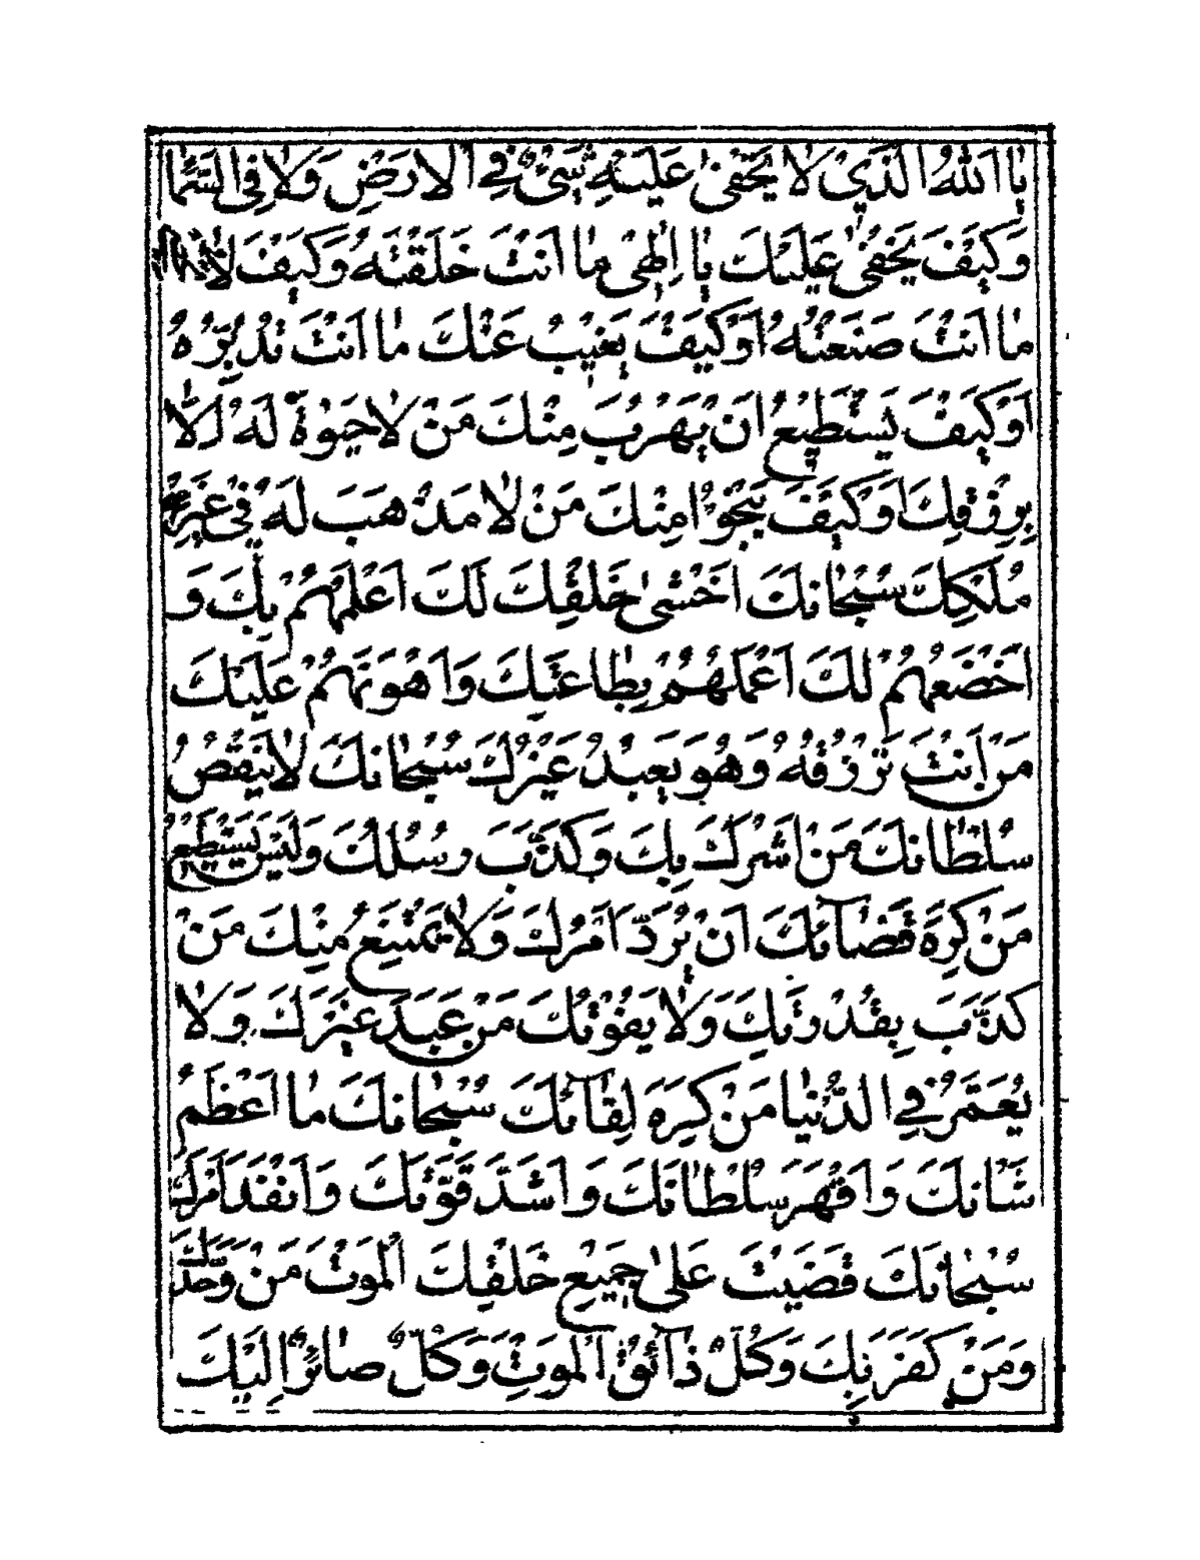 يٰا اَللّٰهُ الَّذِي لاٰ يَخْفىٰ عَلَيْهِ شَيْءٌ فِي الْاَرْضِ وَلاٰ فِي السَّمٰا
وَكَيْفَ يَخْفىٰ عَلَيْكَ يٰا اِلٰهِي مٰا اَنْتَ خَلَقْتَهُ وَكَيْفَ لاٰ
مٰا اَنْتَ صَنَعْتَهُ اَوْ كَيْفَ يَغِيبُ عَنْكَ مٰا اَنْتَ تُدَبِّرُهُ
اَوْ كَيْفَ يَسْتَطِيعُ اَنْ يَهْرُبَ مِنْكَ مَنْ لاٰ حَيٰوةَ لَهُ اِلاّٰ
بِرِزْقِكَ اَوْ كَيْفَ يَنْجُوا مِنْكَ مَنْ لاٰ مَذْهَبَ لَهُ فِي غَيْرِ
مُلْكِكَ سُبْحٰانَكَ اَخْشىٰ خَلْقِكَ لَكَ اَعْلَمُهُمْ بِكَ وَ
اَخْضَعُهُمْ لَكَ اَعْمَلُهُمْ بِطٰاعَتِكَ وَاَهْوَنُهُمْ عَلَيْكَ
مَنْ اَنْتَ تَرْزُقُهُ وَهُوَ يَعْبُدُ غَيْرَكَ سُبْحٰانَكَ لاٰ يَنْقُصُ
سُلْطٰانَكَ مَنْ اَشْرَكَ بِكَ وَكَذَّبَ رُسُلَكَ وَلَيْسَ يَسْتَطِيعُ
مَنْ كَرِهَ قَضٰآئَكَ اَنْ يَرُدَّ اَمْرَكَ وَلاٰ يَمْتَنِعُ مِنْكَ مَنْ
كَذَّبَ بِقُدْرَتِكَ وَلاٰ يَفُوتُكَ مَنْ عَبَدَ غَيْرَكَ وَلاٰ
يُعَمَّرُ فِي الدُّنْيٰا مَنْ كَرِهَ لِقٰآئَكَ سُبْحٰانَكَ مٰا اَعْظَمَ
شَأنَكَ وَاَقْهَرَ سُلْطٰانَكَ وَاَشَدَّ قُوَّتَكَ وَاَنْفَذَ اَمْرَكَ
سُبْحٰانَكَ قَضَيْتَ عَلىٰ جَمِيعِ خَلْقِكَ الْمَوْتَ مَنْ وَحَّدَكَ
وَمَنْ كَفَرَ بِكَ وَكُلٌّ ذٰآئِقُ الْمَوْتِ وَكُلٌّ صٰائِرٌ اِلَيْكَ